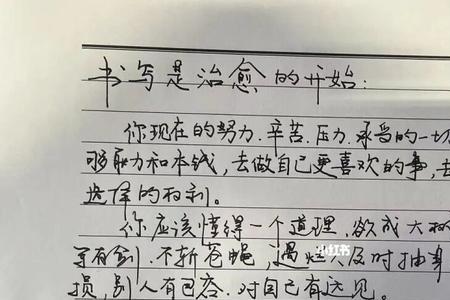 书写是治愈的开始:
你现在的努力.辛苦.压力.承受的一切
够能力和本钱,去做自己更喜欢的事,去
选择的权利。
你应该懂得一个道理,欲成大树
若有剑.不斩苍蝇,遇烂人及时抽身
小红书
损,别人有包容.对自己有远见。